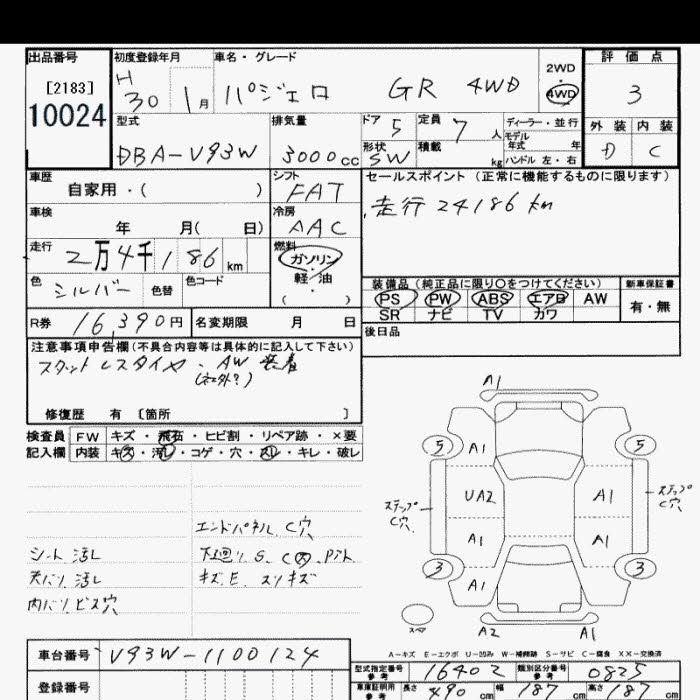 出品番号 初度登録年月 車名・グレード 2WD・4WD 評価点
[2183] H 30 1月 パジェロ GR 4WD 3
10024 外装 内装
D C
型式 排気量 ドア 定員 ディーラー・並行
DBA-V93W 3000cc 5 7人 モデル年式 年
形状 積載 kg ハンドル 左・右
SW
車歴 シフト セールスポイント (正常に機能するものに限ります)
自家用・( ) FAT 走行 24186 km
車検 冷房
年 月( 日) AAC
走行 燃料
2万4千186 km ガソリン・軽油
色 色替 色コード ( )
シルバー
装備品 (純正品に限り〇をつけてください) 新車保証書
PS PW ABS エアB AW 有・無
SR ナビ TV カワ
R券 16,390円 名変期限 月 日 後日品
注意事項申告欄(不具合内容等は具体的に記入して下さい)
スタットレスタイヤ・AW 装着
(社外?)
修復歴 有 〔箇所 〕
検査員 FW キズ・飛石・ヒビ割・リペア跡・×要
記入欄 内装 キズ・汚レ・コゲ・穴・スレ・キレ・破レ
エンドパネル C穴
シート汚レ 下廻り S、C
天バリ汚レ キズ、E、スリキズ
内バリビス穴
A1
5 A1 5
UA2 A1
ステップ C穴 ステップ C穴
A1 A1
3 A1 3
スペア A2 A1
A-キズ E-エクボ U-凹み W-補修跡 S-サビ C-腐食 XX-交換済
車台番号 V93W-1100124
型式指定番号 参考 16402 類別区分番号 参考 0825
登録番号 車庫証明用 参考 長さ 490 cm 幅 187 cm 高さ 187 cm